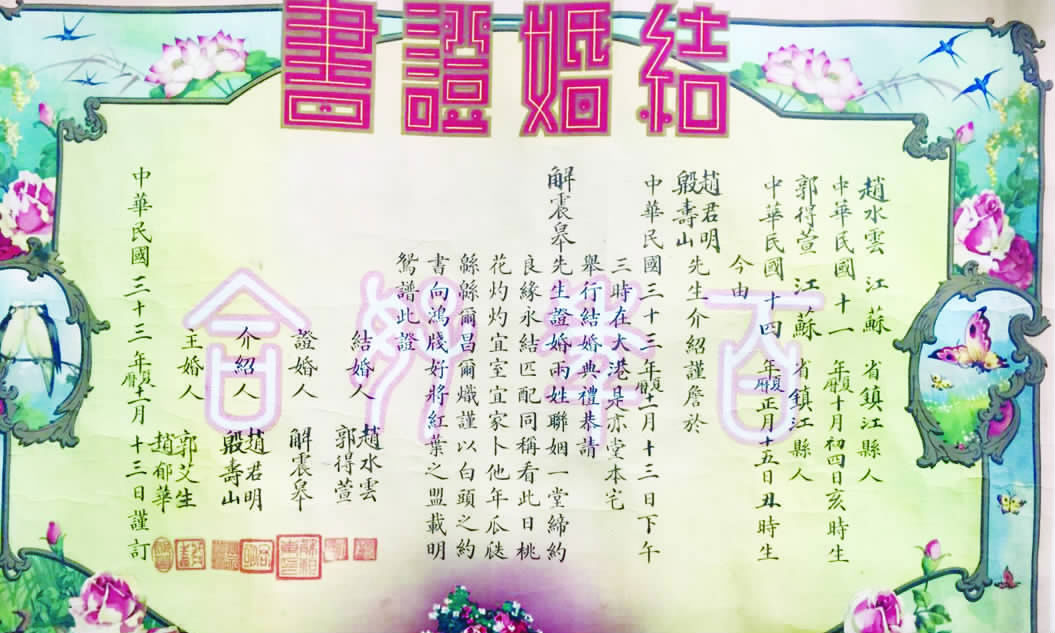 結婚證書
百年好合
趙水雲 江蘇 省鎮江縣人
中華民國十一 年夏曆十月初四日亥時生
郭得萱 江蘇 省鎮江縣人
中華民國十四 年夏曆正月十五日丑時生
今由
趙君明
殷壽山
先生介紹謹詹於
中華民國三十三年夏曆 月十三日下午
三時在大港是亦堂本宅
舉行結婚典禮恭請
解震皋先生證婚兩姓聯姻一堂締約
良緣永結匹配同稱看此日桃
花灼灼宜室宜家卜他年瓜瓞
緜緜爾昌爾熾謹以白頭之約
書向鴻牋好將紅葉之盟載明
鴛譜此證
結婚人 趙水雲
郭得萱
證婚人 解震皋
介紹人 趙君明
殷壽山
主婚人 郭艾生
趙郁華
中華民國三十三年夏曆 月十三日謹訂